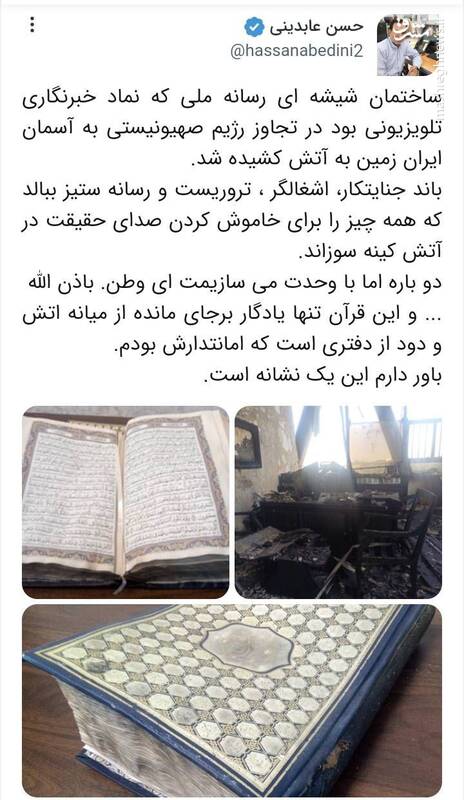 حسن عابدینی
@hassanabedini2
ساختمان شیشه ای رسانه ملی که نماد خبرنگاری
تلویزیونی بود در تجاوز رژیم صهیونیستی به آسمان
ایران زمین به آتش کشیده شد.
باند جنایتکار، اشغالگر ، تروریست و رسانه ستیز ببالد
که همه چیز را برای خاموش کردن صدای حقیقت در
آتش کینه سوزاند.
دو باره اما با وحدت می سازیمت ای وطن. باذن الله
... و این قرآن تنها یادگار برجای مانده از میانه اتش
و دود از دفتری است که امانتدارش بودم.
باور دارم این یک نشانه است.